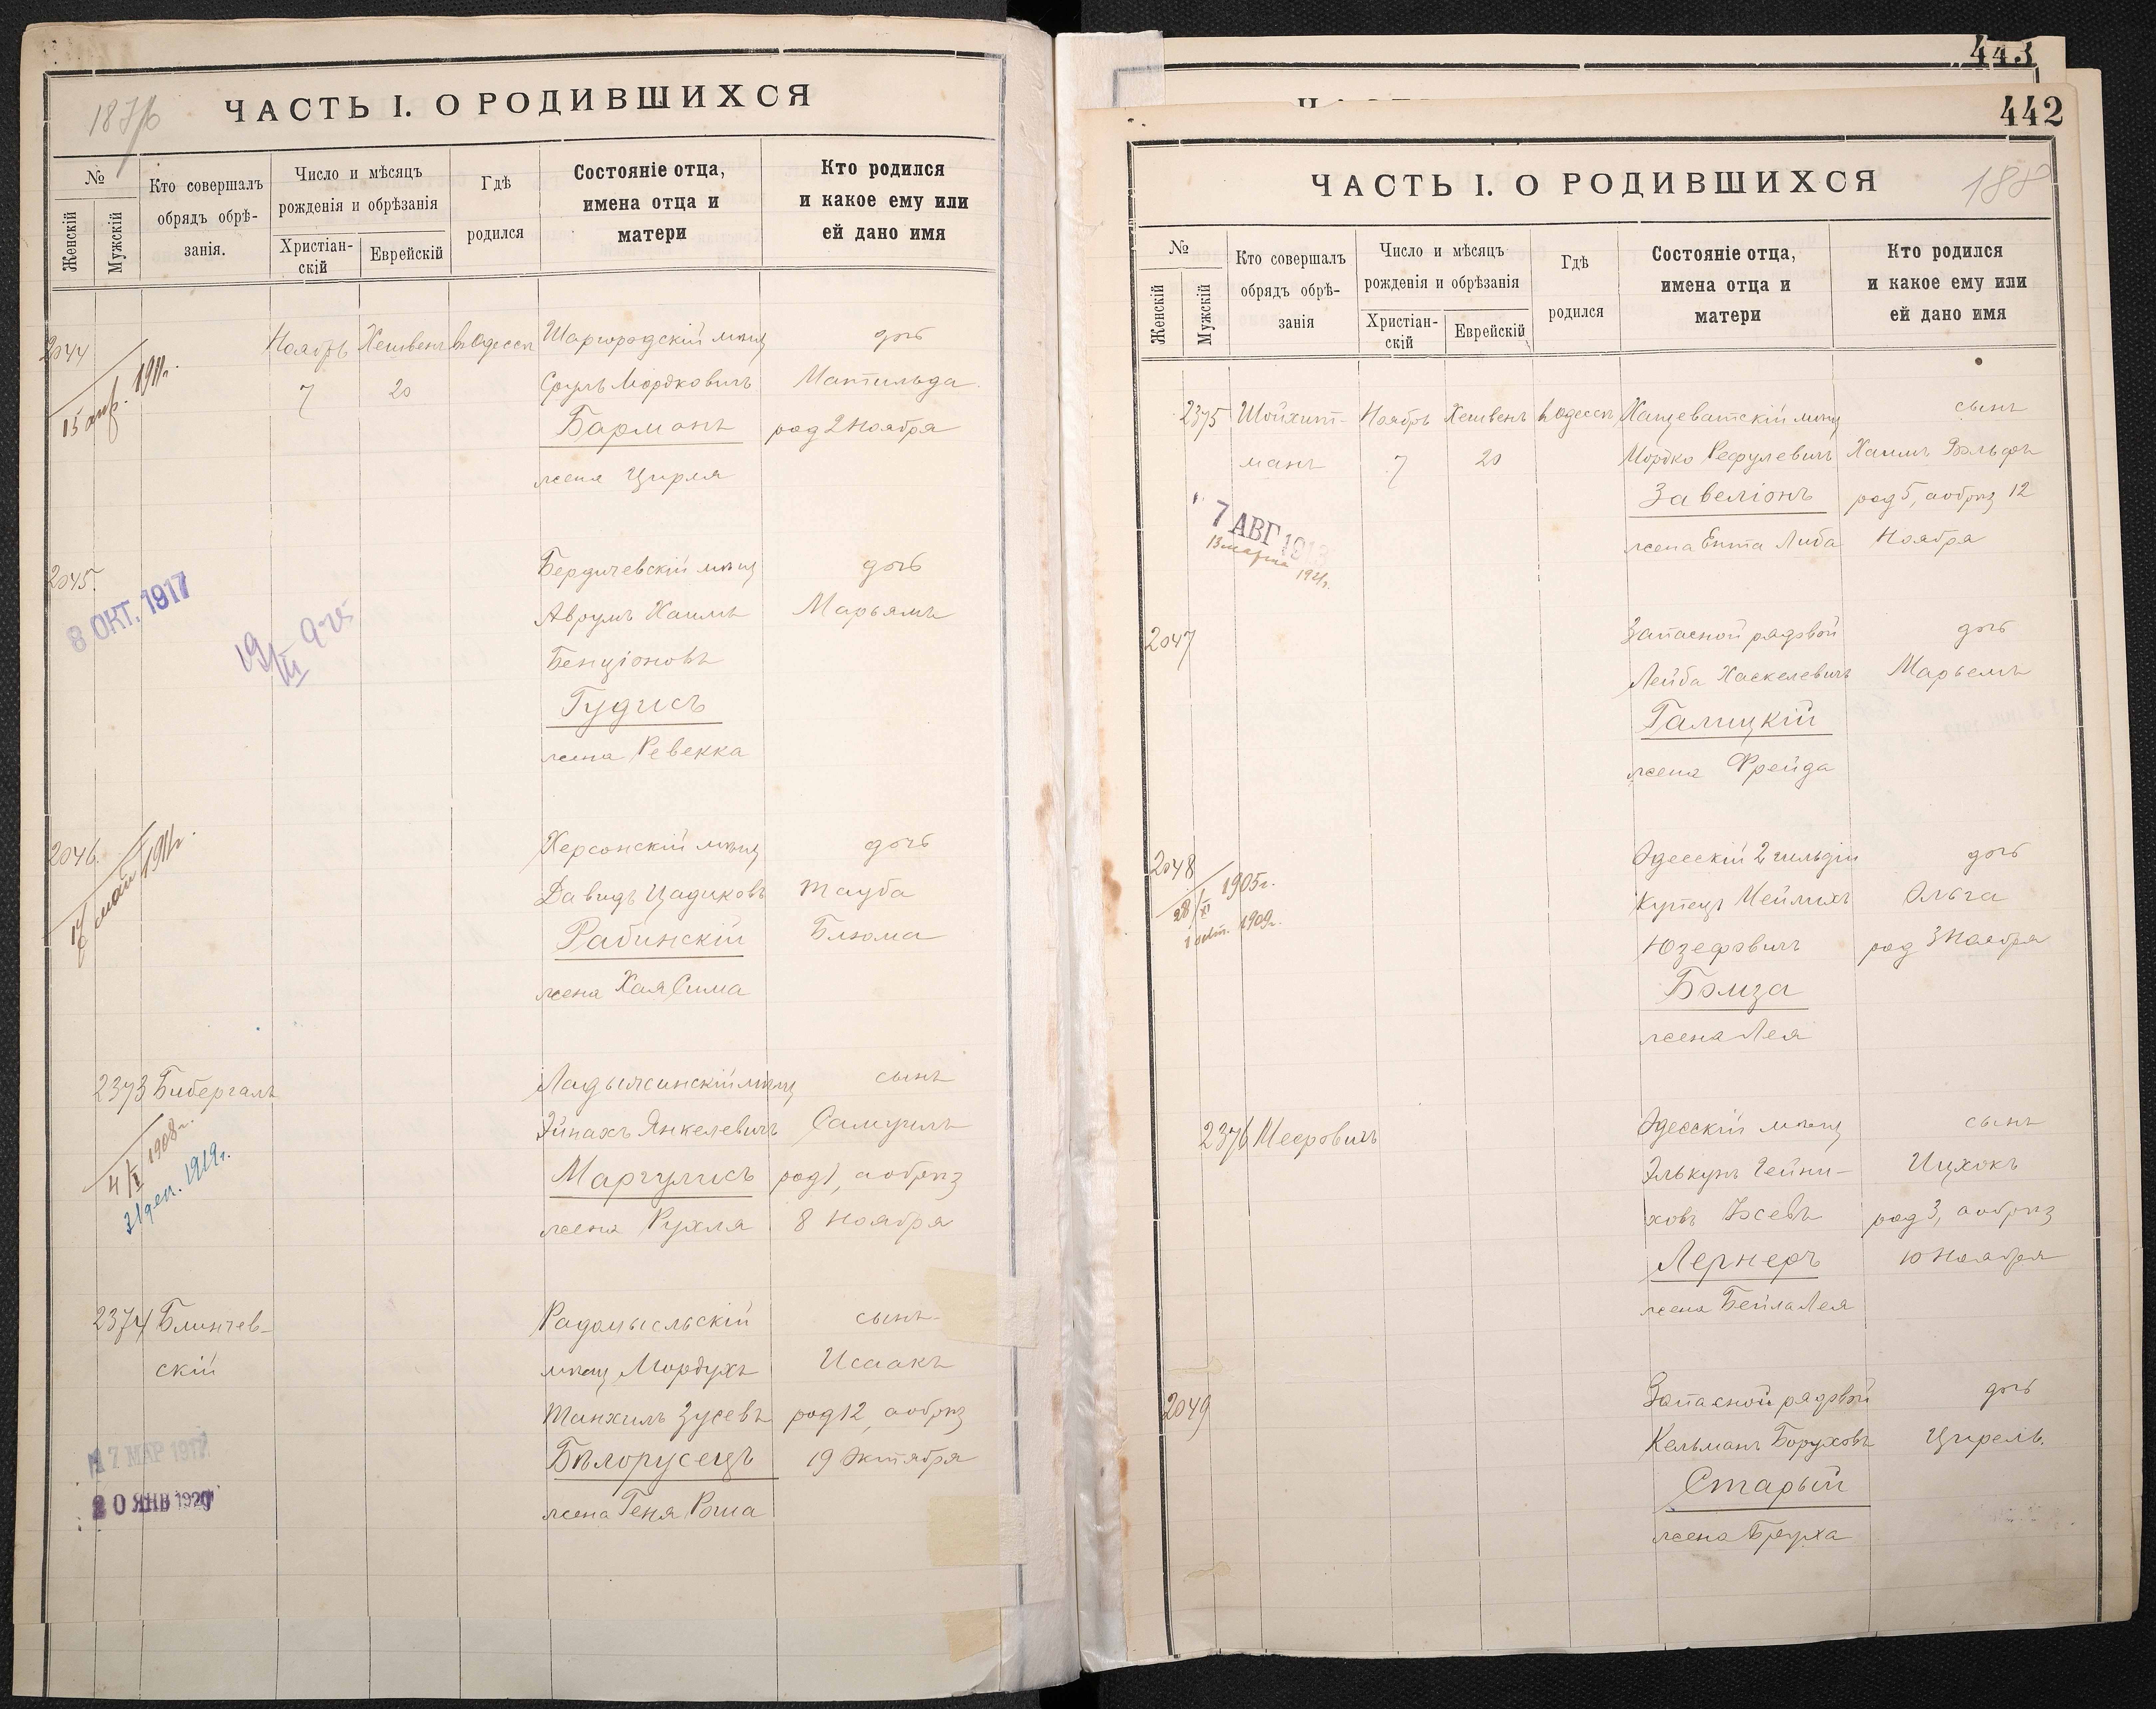 ЧАСТЬ I. О РОДИВШИХСЯ
№
Женскій
Мужскій
Кто совершалъ
обрядъ обрѣ-
занія.
Число и мѣсяцъ
рожденія и обрѣзанія
Христіан-
скій
Еврейскій
Гдѣ
родился
Состояніе отца,
имена отца и
матери
Кто родился
и какое ему или
ей дано имя
2044 Ноябрь Хешвенъ въ Одессѣ Шаргородскій мѣщ дочь
7 20 Сруль Мордковичъ Матильда
15 апр. 1911г.
Барманъ род 2 Ноября
жена Цирля
2045. Бердичевскій мѣщ дочь
8 ОКТ. 1917
Аврумъ Хаимъ Марьямъ
Бенціоновъ
Гудисъ
жена Ревекка
2046. Херсонскій мѣщ дочь
Давидъ Цадиковъ Тауба
Рабинскій Блюма
жена Хая Сима
2373 Бибергалъ Ладыжинскій мѣщ сынъ
Эйнахъ Янкелевичъ Самуилъ
4/X 1908г.
31 дек. 1919г.
Маргулисъ род 1, а обрѣз
жена Рухля 8 Ноября
2374 Блинчев- Радомысльскій сынъ
скій мѣщ Мордухъ Исаакъ
Танхилъ Зусевъ род 12, а обрѣз
17 МАР 1917
Бѣлорусецъ 19 Октября
20 ЯНВ 1920
жена Геня Роша
443
442
ЧАСТЬ I. О РОДИВШИХСЯ
188
№
Женскій
Мужскій
Кто совершалъ
обрядъ обрѣ-
занія
Число и мѣсяцъ
рожденія и обрѣзанія
Христіан-
скій
Еврейскій
Гдѣ
родился
Состояніе отца,
имена отца и
матери
Кто родился
и какое ему или
ей дано имя
2375 Шойхит- Ноябрь Хешвенъ въ Одессѣ Хащеватскій мѣщ сынъ
манъ 7 20 Мордко Рефулевичъ Хаимъ Вольфъ
Завеліонъ род 5, а обрѣз 12
7 АВГ 1913
13 марта 1921г.
жена Ента Либа Ноября
2047 Запасной рядовой дочь
Лейба Хаскелевичъ Марьемъ
Галицкій
жена Фрейда
2048 Одесскій 2 гильдіи дочь
28/XI 1905г.
1 1909г.
Купецъ Меймихъ Ольга
Юзефовичъ род 3 Ноября
Бомза
жена Лея
2376 Мееровичъ Одесскій мѣщ сынъ
Элькунъ Гейни- Ицхокъ
ховъ Іосевъ род 3, а обрѣз
Лернеръ 10 Ноября
жена Бейла Лея
2049 Запасной рядовой дочь
Кельманъ Боруховъ Цирель.
Старый
жена Бруха